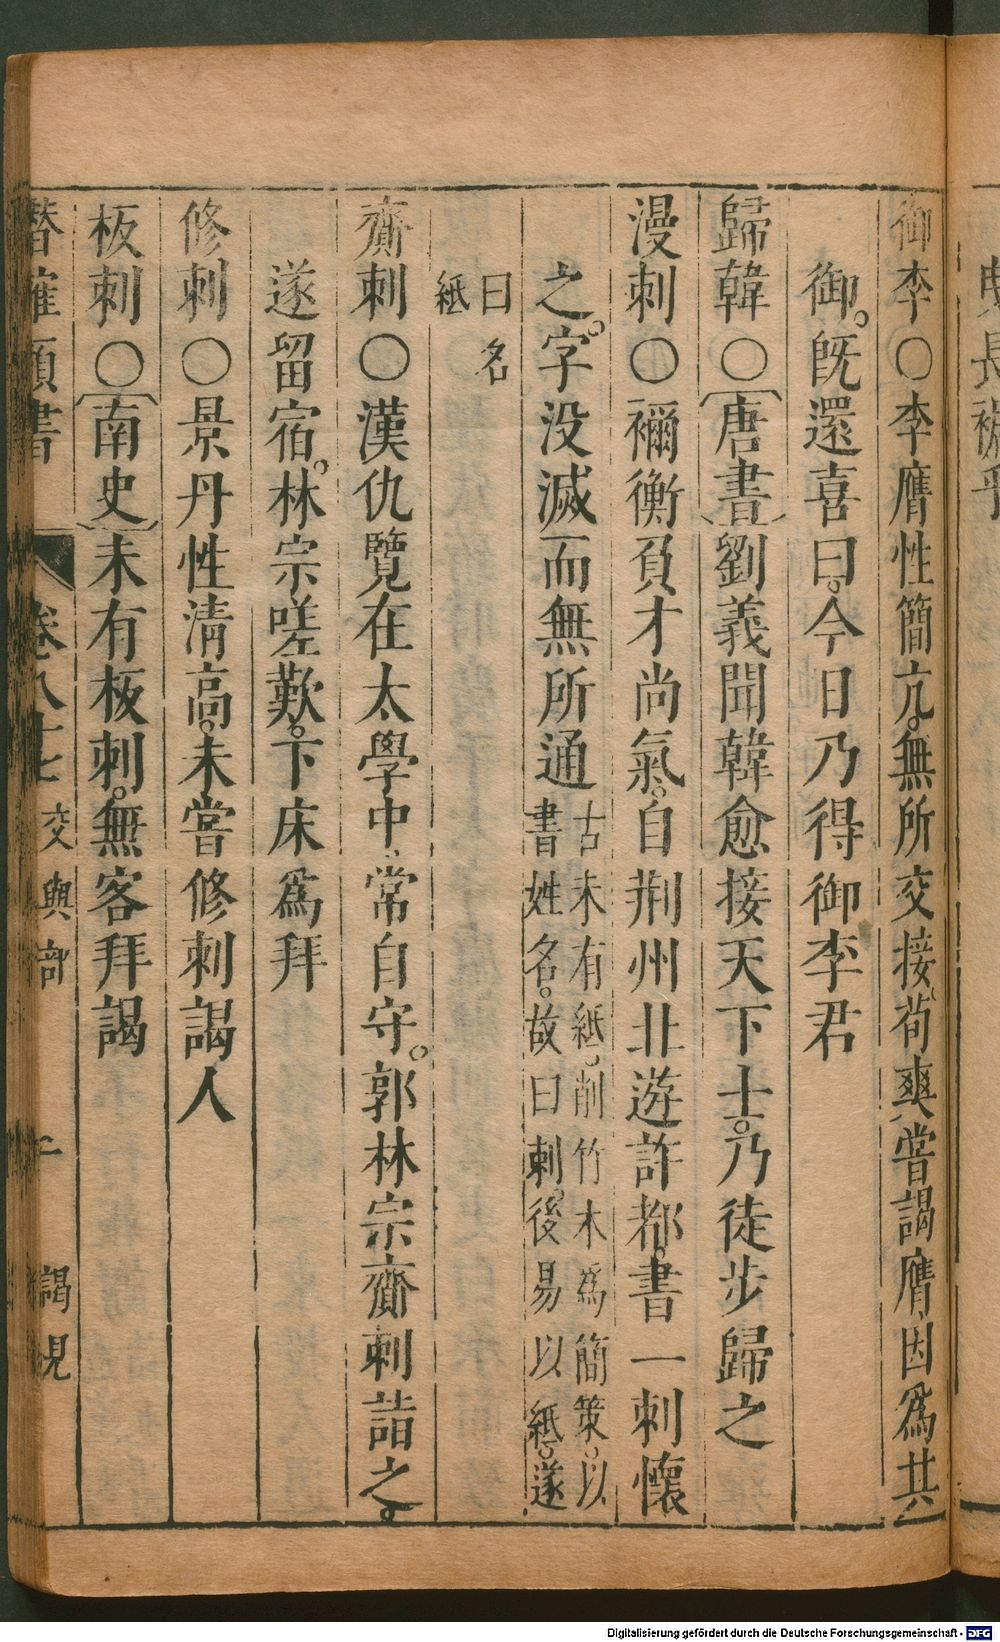 御李〇李膺性簡亢。無所交接。荀爽嘗謁膺因爲共
御。旣還喜曰。今日乃得御李君
歸韓〇〔唐書〕劉義聞韓愈接天下士。乃徒步歸之
漫刺〇禰衡負才尚氣。自荆州北遊許都。書一刺懷
之。字没滅而無所通古未有紙。削竹木爲簡策。以
書姓名。故曰刺。後易以紙。遂
曰名
紙
齋刺〇漢仇覽在太學中。常自守。郭林宗齋刺詣之。
遂留宿。林宗嗟歎。下床爲拜
修刺〇景丹性清高。未嘗修刺謁人
板刺〇〔南史〕未有板刺。無客拜謁
潛確類書 卷八十七 交與部 二 謁見
Digitalisierung gefördert durch die Deutsche Forschungsgemeinschaft - DFG